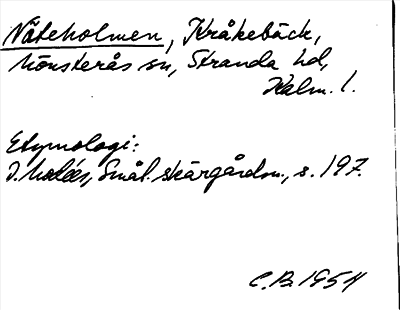 Nåteholmen, Kråkebäck,
Mönsterås sn, Stranda hd,
Kalm. l.
Etymologi:
D. Modéer, Smål. skärgårdsn., s. 197.
C.B. 1954